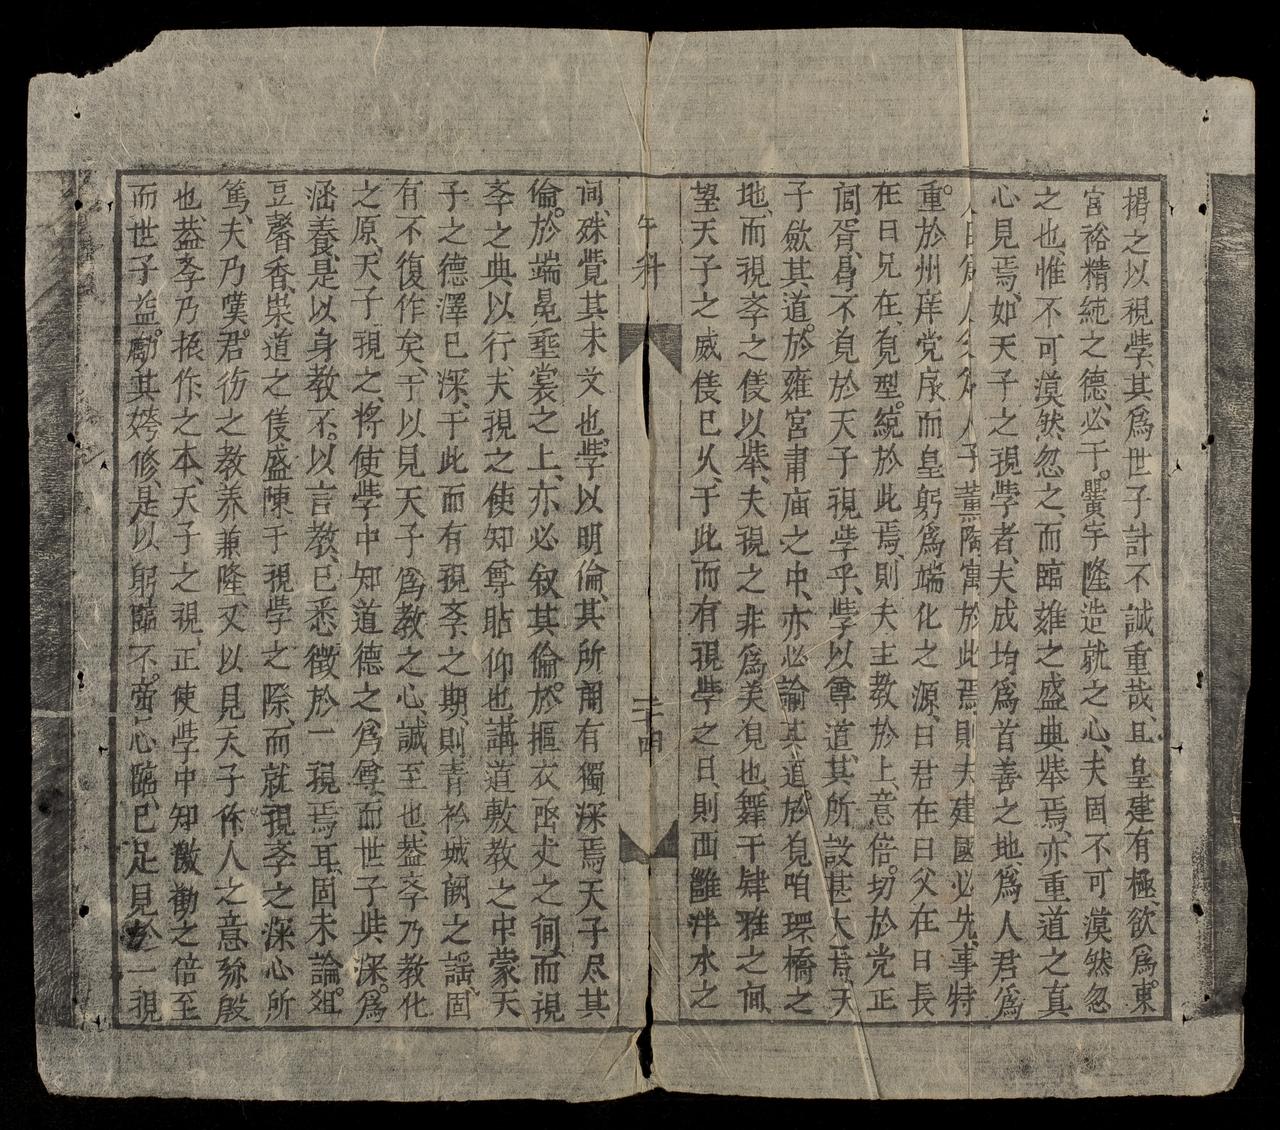 之以視學其爲世子計不誠重哉且皇建有極欲爲東
宮裕精純之德必于黌宇隆造就之心夫固不可漠然忽
之也惟不可漠然忽之而臨雍之盛典舉焉亦重道之真
心見焉如天子之視學者夫成均爲首善之地爲人君爲
重於州庠党序而皇躬爲端化之源曰君在曰父在曰長
子薰陶寓於此焉則夫建國必先事特
在曰兄在覓型統於此焉則夫主教於上意倍切於党正
閭胥曷不覓於天子視學乎學以尊道其所設甚大焉天
子斂其道於雍宮肅庙之中亦必論其道於覓咱環橋之
地而視斈之隻以舉夫視之非爲美覓也舞干肄雅之间
望天子之威隻已乆于此而有視學之日則西雝泮水之
午科
二十四
间殊覺其未文也學以明倫其所関有獨深焉天子尽其
倫於端冕垂裳之上亦必叙其倫於摳衣啇丈之间而視
斈之典以行夫視之使知尊貼仰也講道敷教之中蒙天
子之德澤已深于此而有視斈之期則青衿城阙之謡固
有不復作矣于以見天子爲教之心誠至也盖斈乃教化
之原天子視之將使學中知道德之爲尊而世子典深爲
涵養是以身教不以言教已悉徵於一視焉耳固未論俎
豆馨香崇道之隻盛陳于視學之際而就視斈之深心所
篤夫乃嘆君彷之教养兼隆又以見天子作人之意弥殷
也盖斈乃振作之本天子之視正使學中知激勸之倍至
而世子益勵其姱修是以躬臨不啻心臨已足見於一視